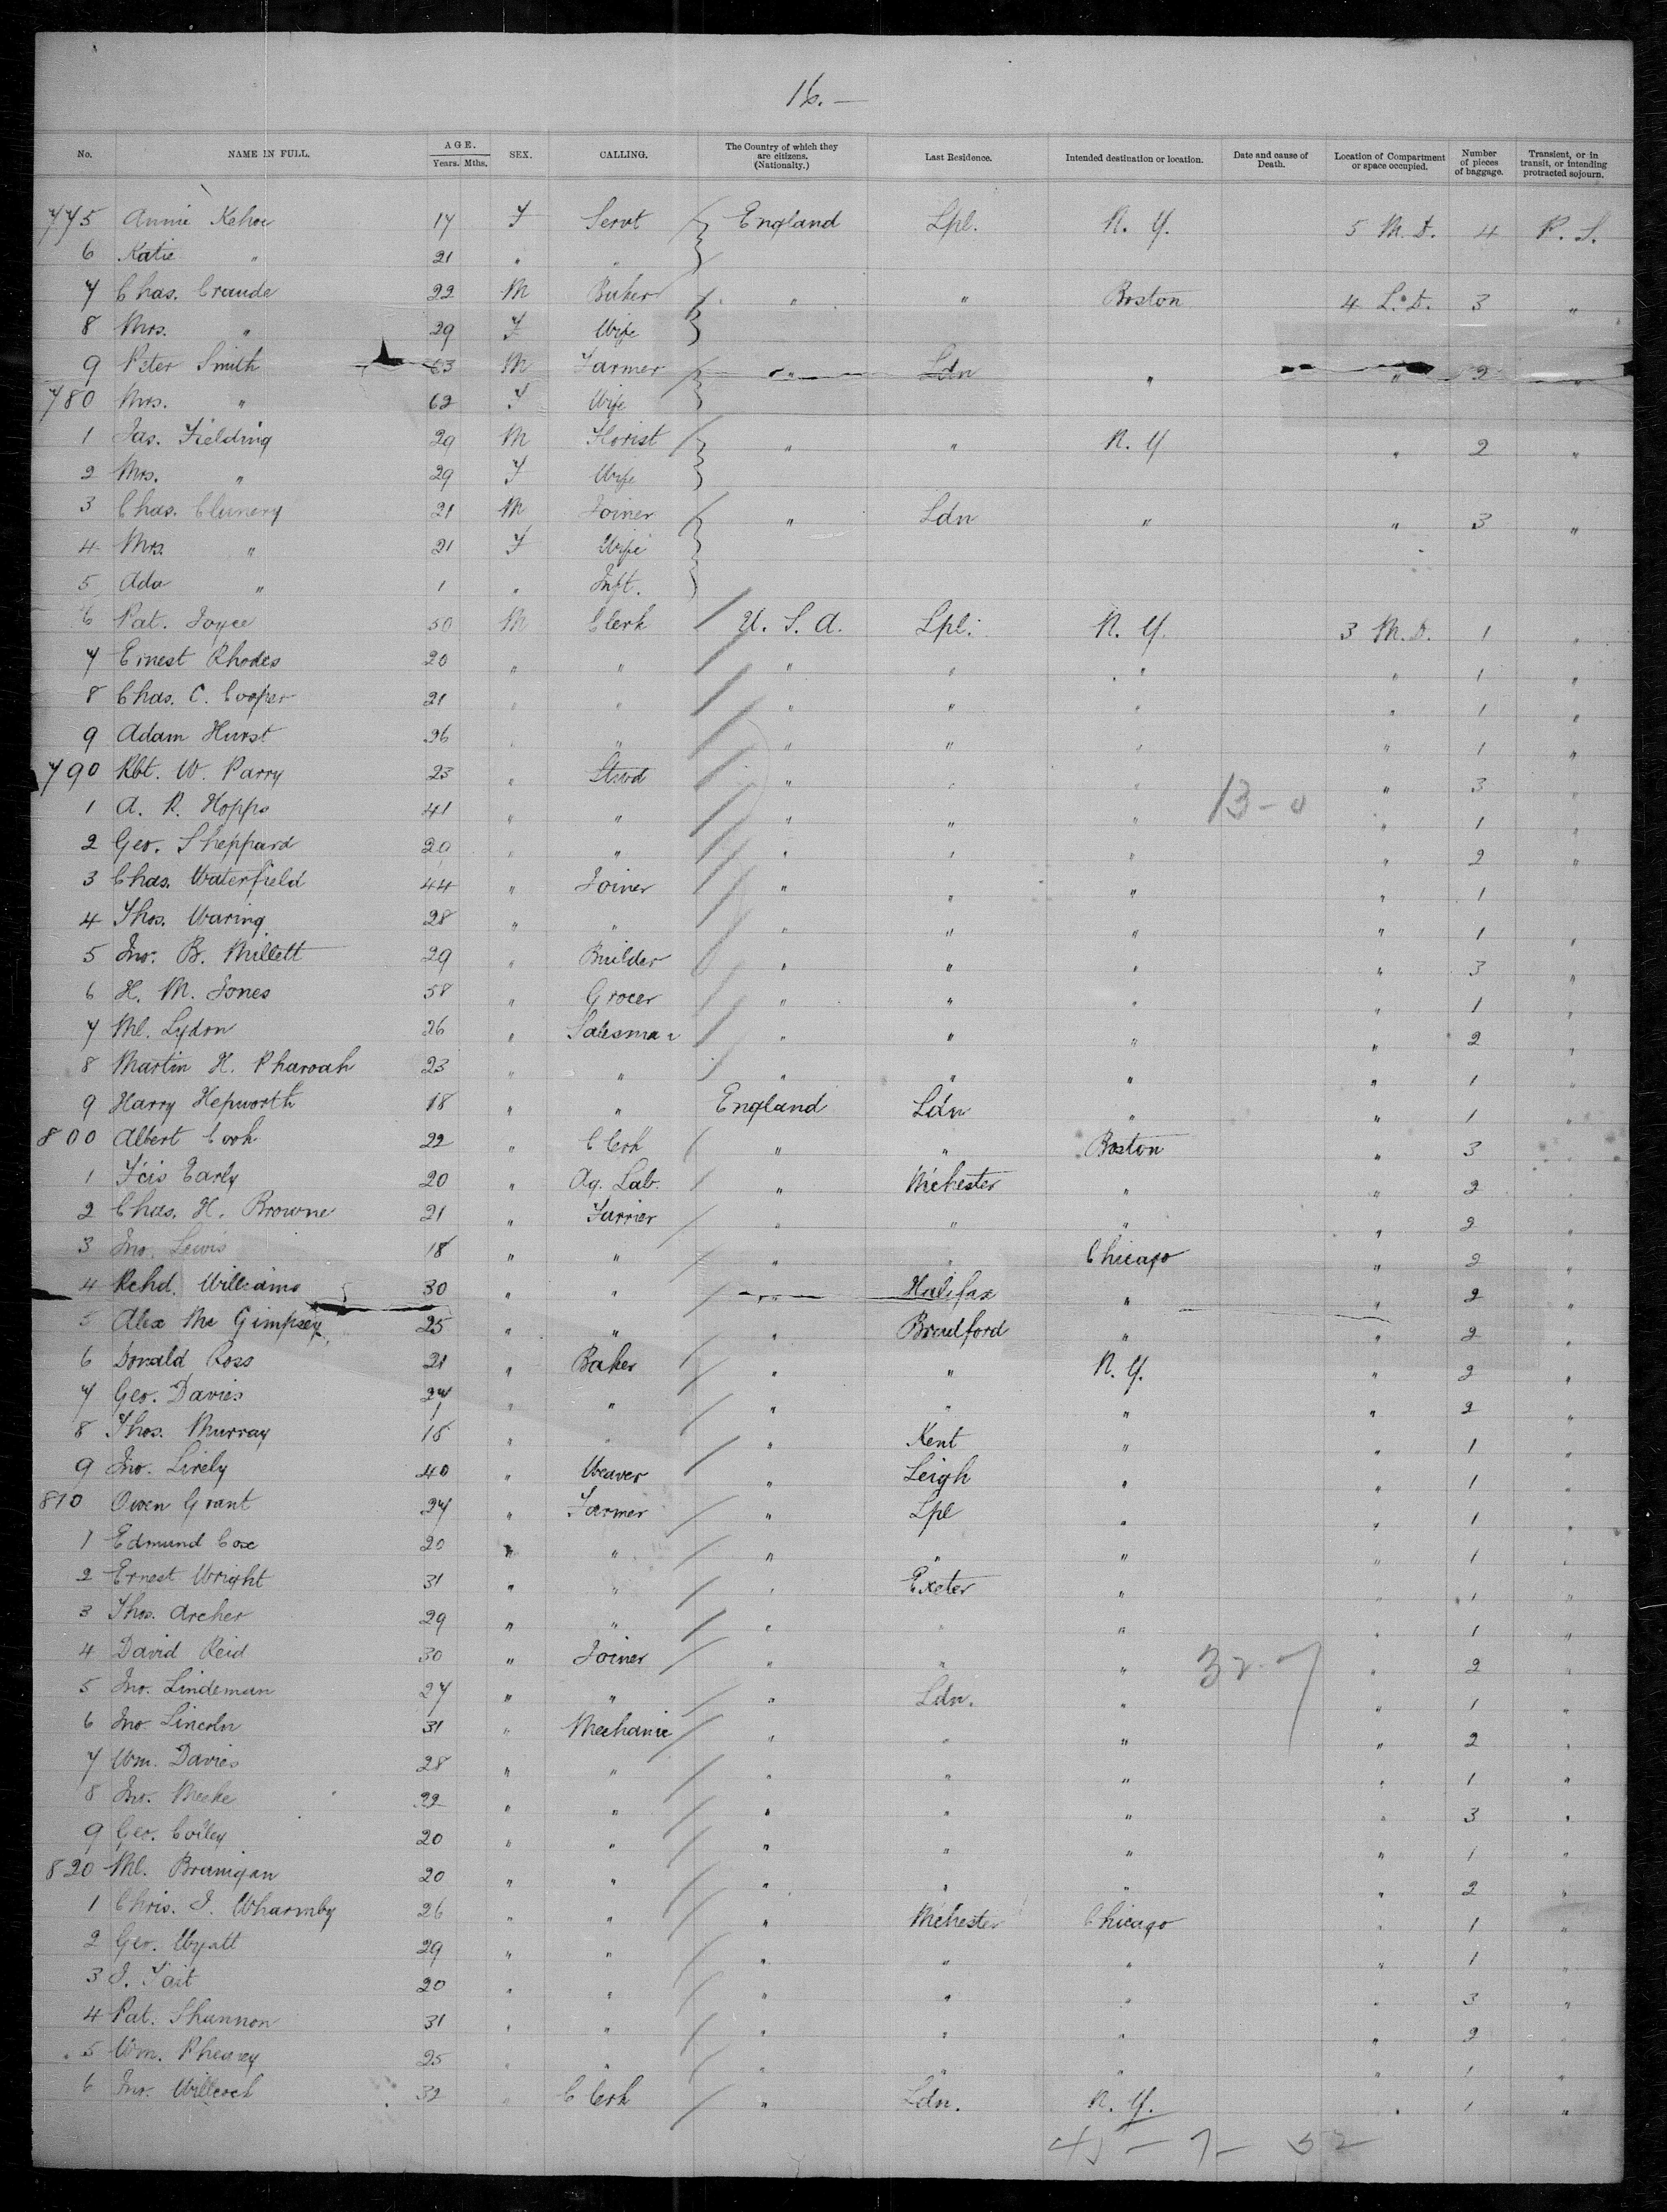 16.—
No. NAME IN FULL. AGE. Years. Mths. SEX. CALLING. The Country of which they are citizens. (Nationalty.) Last Residence. Intended destination or location. Date and cause of Death. Location of Compartment or space occupied. Number of pieces of baggage. Transient, or in transit, or intending protracted sojourn.
775 Annie Kehoe 17 F Servt England Lpl. N. Y. 5 M. D. 4 P. S.
6 Katie " 21 " "
7 Chas. Craude 22 M Baker " " Boston 4 L. D. 3 "
8 Mrs. " 29 F Wife
9 Peter Smith 63 M Farmer " Ldn " " 2 "
780 Mrs. " 62 F Wife
1 Jas. Fielding 29 M Florist " " N. Y. " 2 "
2 Mrs. " 29 F Wife
3 Chas. Clunery 21 M Joiner " Ldn " " 3 "
4 Mrs. " 21 F Wife
5 Ada " 1 " Inft.
6 Pat. Joyce 50 M Clerk U. S. A. Lpl. N. Y. 3 M. D. 1 "
7 Ernest Rhodes 20 " " " " " " 1 "
8 Chas. C. Cooper 21 " " " " " " 1 "
9 Adam Hurst 26 " " " " " " 1 "
790 Rbt. W. Parry 23 " Stwd " " " " 3 "
1 A. R. Hopps 41 " " " " " 13-0 " 1 "
2 Geo. Sheppard 29 " " " " " " 2 "
3 Chas. Waterfield 44 " Joiner " " " " 1
4 Thos. Waring 28 " " " " " " 1 "
5 Jno. B. Millett 29 " Builder " " " " 3 "
6 H. M. Jones 58 " Grocer " " " " 1 "
7 Ml. Lydon 26 " Salesman " " " " 2 "
8 Martin H. Pharoah 23 " " " " " " 1 "
9 Harry Hepworth 18 " " England Ldn " " 1 "
800 Albert Cook 22 " Clerk " " Boston " 3
1 F'cis Early 20 " Ag. Lab. " M'chester " " 2 "
2 Chas. H. Browne 21 " Farrier " " " " 2 "
3 Jno. Lewis 18 " " " " Chicago " 2 "
4 Rchd. Williams 30 " " " Halifax " " 2 "
5 Alex Mc Gimpsey 25 " " " Bradford " " 2 "
6 Donald Ross 21 " Baker " " N. Y. " 2 "
7 Geo. Davies 27 " " " " " " 2 "
8 Thos. Murray 18 " " " Kent " " 1 "
9 Jno. Lively 40 " Weaver " Leigh " " 1 "
810 Owen Grant 27 " Farmer " Lpl " " 1 "
1 Edmund Cox 20 " " " " " " 1 "
2 Ernest Wright 31 " " " Exeter " " 1 "
3 Thos. Archer 29 " " " " " " 1 "
4 David Reid 30 " Joiner " " " 32-7 " 2 "
5 Jno. Lindeman 27 " " " Ldn. " " 1 "
6 Jno. Lincoln 31 " Mechanic " " " " 2 "
7 Wm. Davies 28 " " " " " " 1 "
8 Jno. Meeke 22 " " " " " " 3 "
9 Geo. Coiley 20 " " " " " " 1 "
820 Ml. Branigan 20 " " " " " " 2 "
1 Chris. J. Wharmby 26 " " " Mchester Chicago " 1 "
2 Geo. Wyatt 29 " " " " " " 1 "
3 J. Tait 20 " " " " " " 3 "
4 Pat. Shannon 31 " " " " " " 2 "
5 Wm. Pheavy 25 " " " " " " 1 "
6 Jno. Willcock 32 " Clerk " Ldn. N. Y. " 1 "
45-7- 52